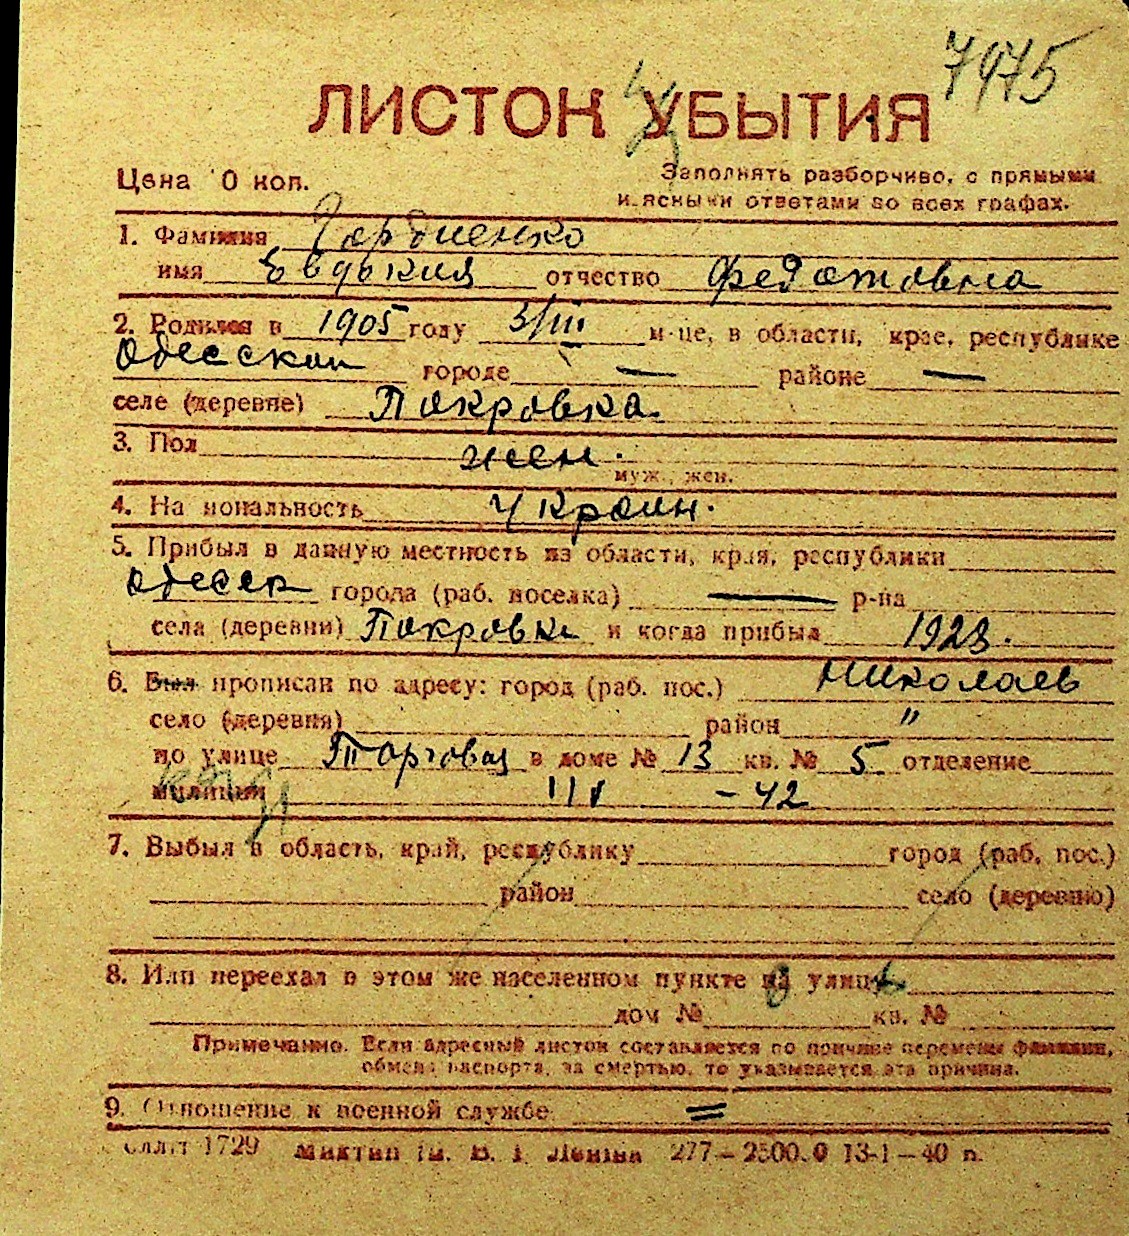 7975
ЛИСТОК УБЫТИЯ
Цена 10 коп.
Заполнять разборчиво, с прямыми
и ясными ответами во всех графах.
1. Фамилия Гордиенко
имя Евдокия отчество Федотовна
2. Родился в 1905 году 3/III м-це, в области, крае, республике
Одесской городе — районе —
селе (деревне) Покровка
3. Пол жен.
муж., жен.
4. Национальность Украин.
5. Прибыл в данную местность из области, края, республики
Одесск города (раб. поселка) — р-на
села (деревни) Покровка и когда прибыл 1923.
6. Был прописан по адресу: город (раб. пос.) Николаев
село (деревня) район "
по улице Торговая в доме № 13 кв. № 5 отделение
милиции III - 42
7. Выбыл в область, край, республику город (раб. пос.)
район село (деревню)
8. Или переехал в этом же населенном пункте на улицу
дом № кв. №
Примечание. Если адресный листок составляется по причине перемены фамилии,
обмена паспорта, за смертью, то указывается эта причина.
9. Отношение к военной службе =
1729 им. В. І. Леніна 277—2500.0 13-1—40 п.